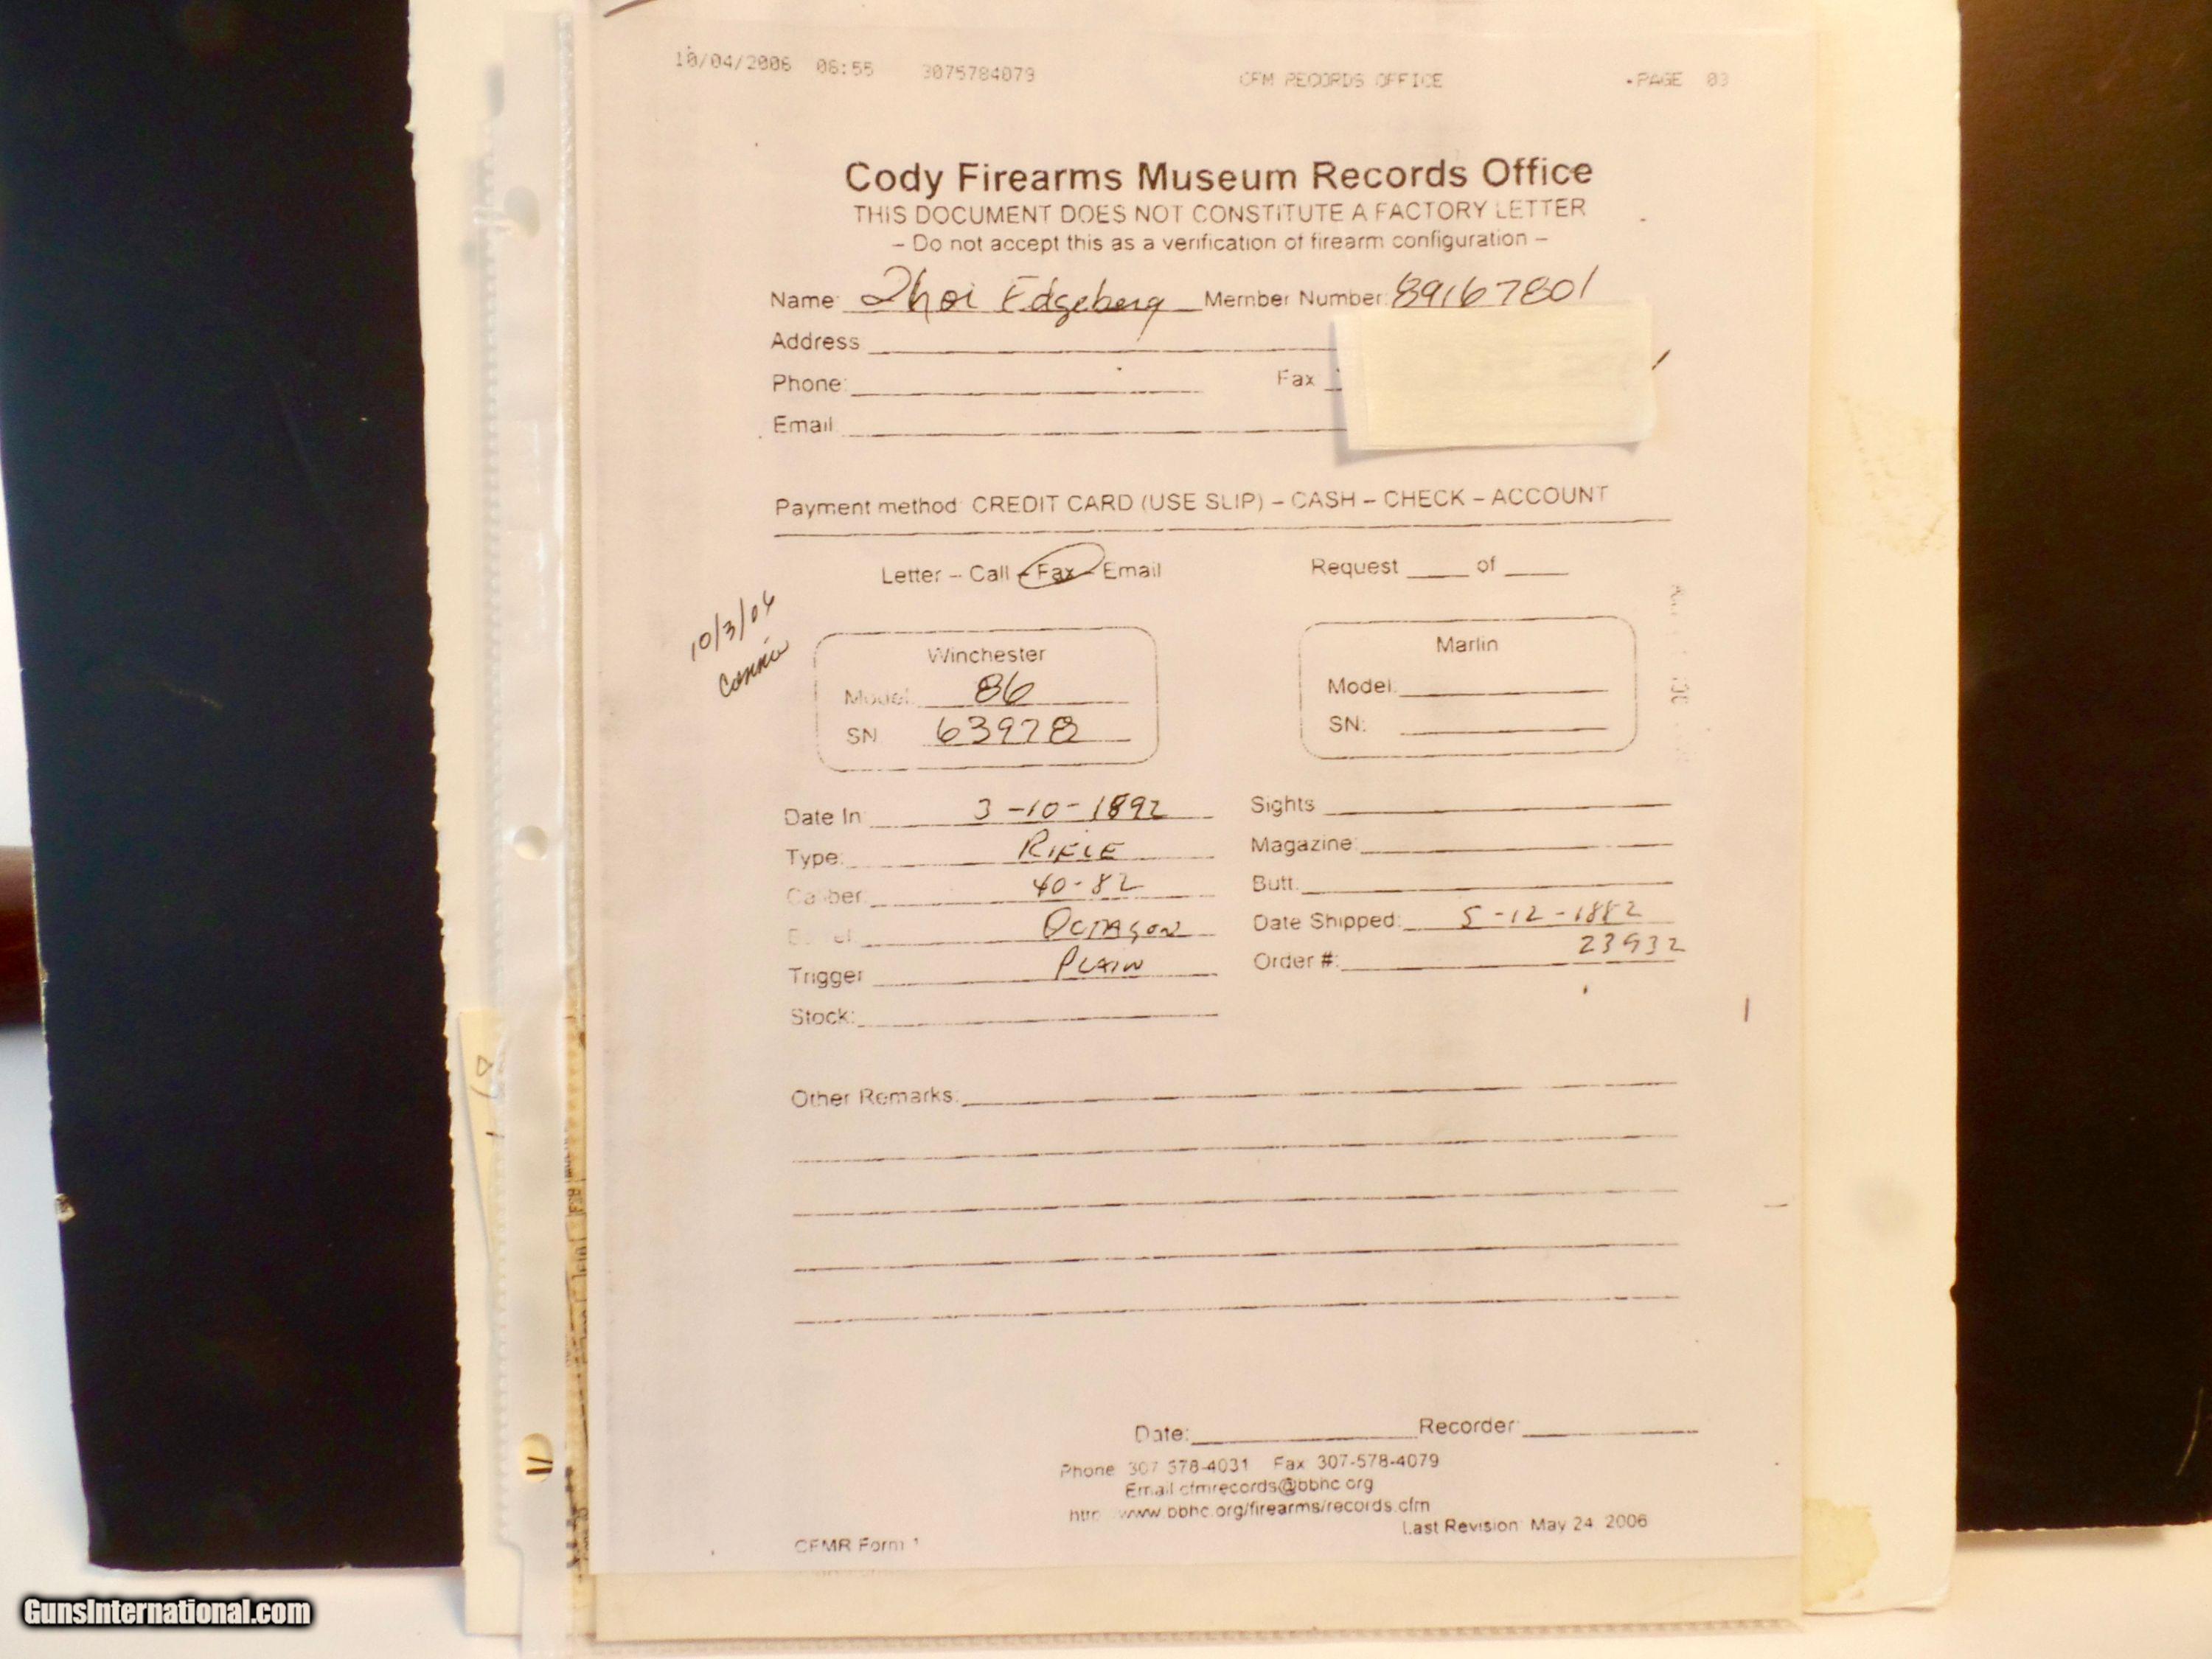 10/04/2006 06:55 3075784079 CFM RECORDS OFFICE PAGE 03
Cody Firearms Museum Records Office
THIS DOCUMENT DOES NOT CONSTITUTE A FACTORY LETTER
– Do not accept this as a verification of firearm configuration –
Name: Edgeberg Member Number: 89167801
Address
Phone: Fax
Email
Payment method: CREDIT CARD (USE SLIP) – CASH – CHECK – ACCOUNT
Letter – Call – Fax – Email Request ____ of ____
10/3/06
Connie
Winchester
Model: 86
SN 63978
Marlin
Model:
SN:
Date In: 3-10-1892
Type: RIFLE
Caliber: 40-82
OCTAGON
Trigger PLAIN
Stock:
Sights
Magazine:
Butt:
Date Shipped: 5-12-1882
Order #: 23932
Other Remarks:
Date: Recorder:
Phone 307 578-4031 Fax 307-578-4079
Email cfmrecords@bbhc.org
http www.bbhc.org/firearms/records.cfm
Last Revision: May 24, 2006
CFMR Form 1
GunsInternational.com